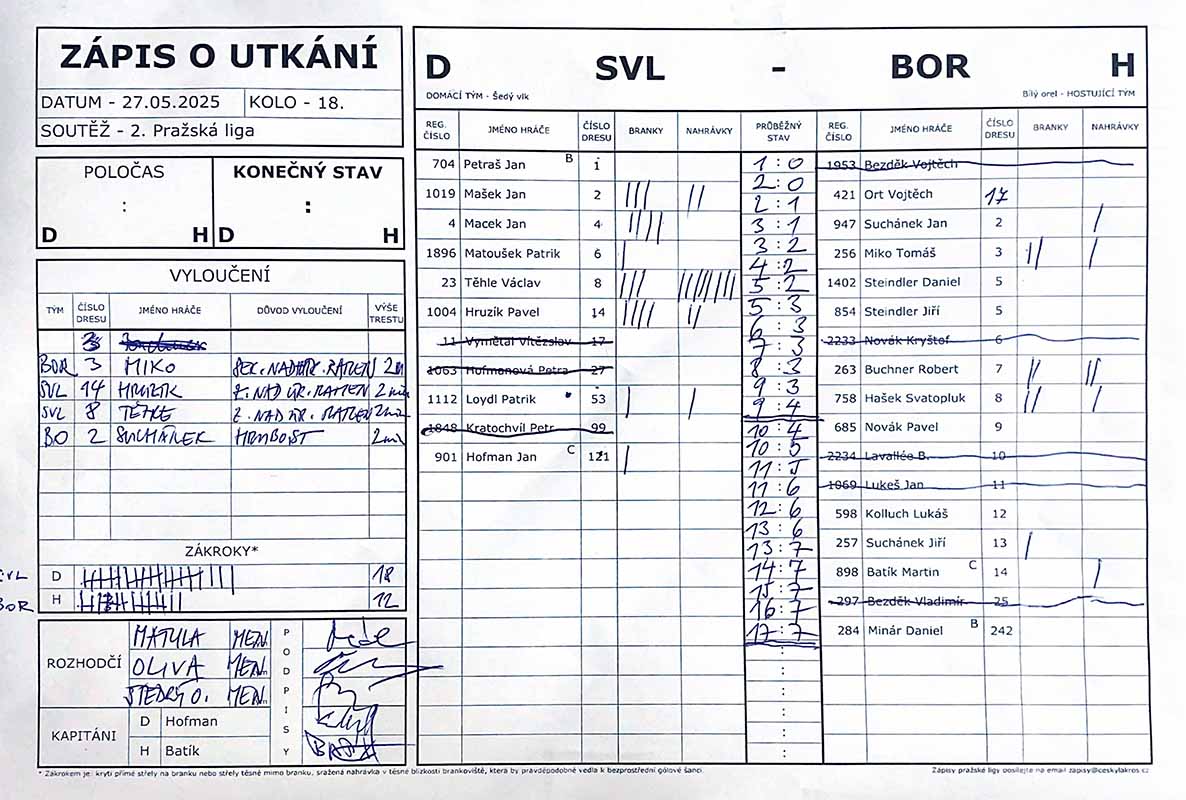 ZÁPIS O UTKÁNÍ
DATUM - 27.05.2025 KOLO - 18.
SOUTĚŽ - 2. Pražská liga
POLOČAS KONEČNÝ STAV
: :
D H D H
VYLOUČENÍ
TÝM ČÍSLO DRESU JMÉNO HRÁČE DŮVOD VYLOUČENÍ VÝŠE TRESTU
BOR 3 MIKO
SVL 14 HRUZÍK Z. NAD ÚR. RAMEN 2min
SVL 8 Z. NAD ÚR. RAMEN 2min
BO 2 SUCHÁNEK HRUBOST 2min
ZÁKROKY*
SVL D 18
BOR H 12
ROZHODČÍ
MATULA MEN.
OLIVA MEN.
ŠTEDRÝ O. MEN.
PODPISY
KAPITÁNI
D Hofman
H Batík
D SVL - BOR H
DOMÁCÍ TÝM - Šedý vlk Bílý orel - HOSTUJÍCÍ TÝM
REG. ČÍSLO JMÉNO HRÁČE ČÍSLO DRESU BRANKY NAHRÁVKY PRŮBĚŽNÝ STAV REG. ČÍSLO JMÉNO HRÁČE ČÍSLO DRESU BRANKY NAHRÁVKY
704 Petraš Jan B 1
1019 Mašek Jan 2
4 Macek Jan 4
1896 Matoušek Patrik 6
23 Těhle Václav 8
1004 Hruzík Pavel 14
11 Vymětal Vítězslav 17
1063 Hofmanová Petra 27
1112 Loydl Patrik 53
1848 Kratochvíl Petr 99
901 Hofman Jan C 121
1:0
2:0
2:1
3:1
3:2
4:2
5:2
5:3
6:3
7:3
8:3
9:3
9:4
10:4
10:5
11:5
11:6
12:6
13:6
13:7
14:7
15:7
16:7
17:7
:
:
:
:
1953 Bezděk Vojtěch
421 Ort Vojtěch 17
947 Suchánek Jan 2
256 Miko Tomáš 3
1402 Steindler Daniel 5
854 Steindler Jiří 5
2233 Novák Kryštof 6
263 Buchner Robert 7
758 Hašek Svatopluk 8
685 Novák Pavel 9
2234 Lavallée B. 10
1069 Lukeš Jan 11
598 Kolluch Lukáš 12
257 Suchánek Jiří 13
898 Batík Martin C 14
297 Bezděk Vladimír 25
284 Minár Daniel B 242
* Zákrokem je: krytí přímé střely na branku nebo střely těsně mimo branku, sražená nahrávka v těsné blízkosti brankoviště, která by pravděpodobně vedla k bezprostřední gólové šanci.
Zápisy pražské ligy posílejte na email zapisy@ceskylakros.cz